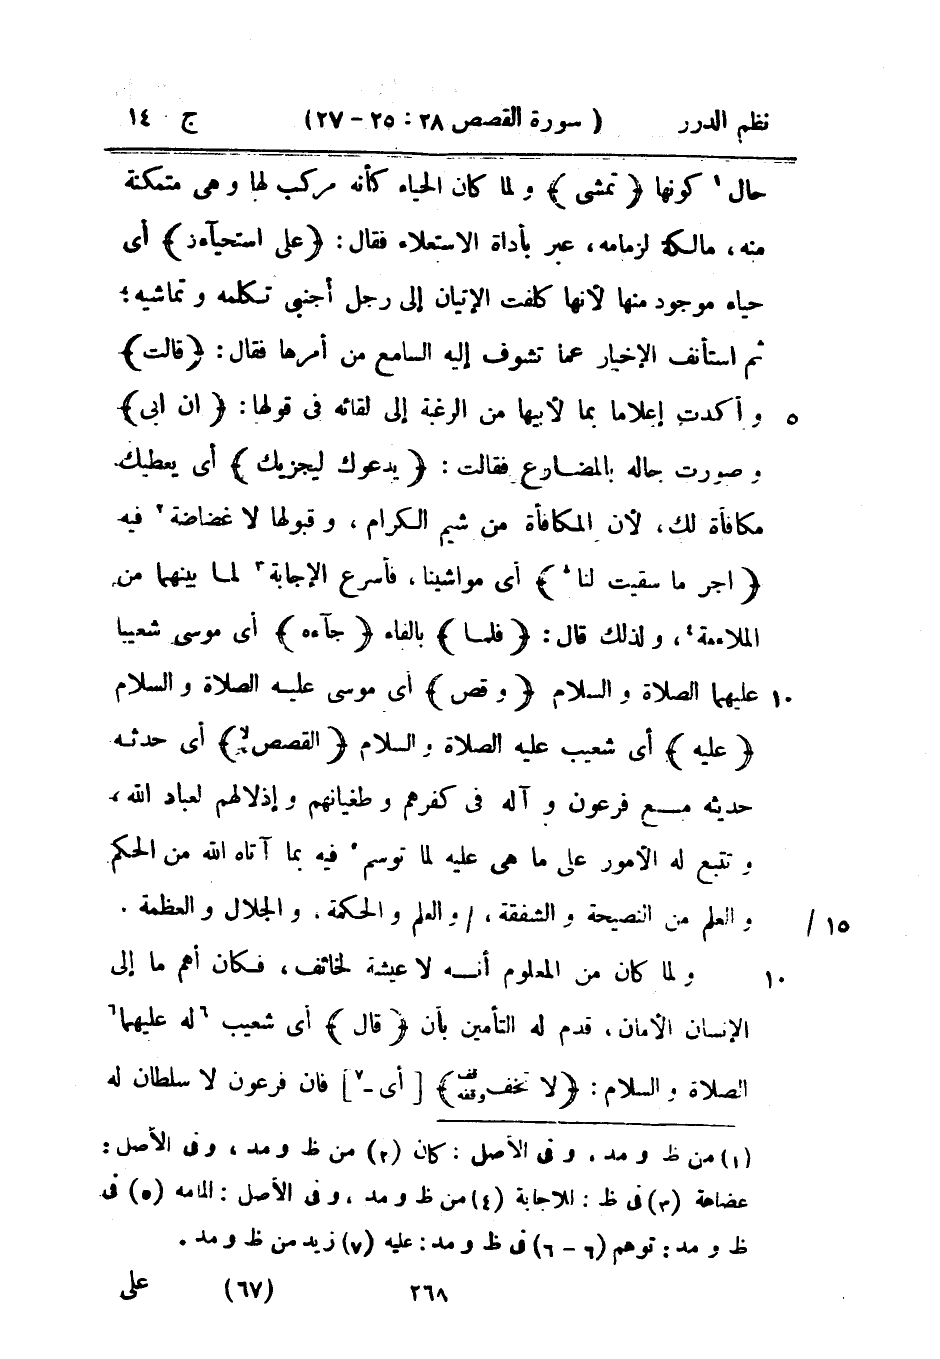 نظم الدرر ( سورة القصص ٢٨ : ٢٥ - ٢٧ ) ج ١٤
حال ١ كونها ﴿ تمشى ﴾ و لما كان الحياء كأنه مركب لها و هى متمكنة
منه ، مالكة لزمامه ، عبر بأداة الاستعلاء فقال : ﴿ على استحيآءز ﴾ أى
حياء موجود منها لأنها كلفت الإتيان إلى رجل أجنبى تكلمه و تماشيه ؛
ثم استأنف الإخبار عما تشوف إليه السامع من أمرها فقال : ﴿ قالت ﴾
٥ و أكدت إعلاما بما لأبيها من الرغبة إلى لقائه فى قولها : ﴿ ان ابى ﴾
و صورت حاله بالمضارع فقالت : ﴿ يدعوك ليجزيك ﴾ أى يعطيك
مكافأة لك ، لأن المكافأة من شيم الكرام ، و قبولها لا غضاضة ٢ فيه
﴿ اجر ما سقيت لنا ۸ ﴾ أى مواشينا ، فأسرع الإجابة ٣ لما بينهما من
الملاءمة ٤ ، و لذلك قال : ﴿ فلما ﴾ بالفاء ﴿ جآءه ﴾ أى موسى شعيبا
١٠ عليهما الصلاة و السلام ﴿ و قص ﴾ أى موسى عليه الصلاة و السلام
﴿ عليه ﴾ أى شعيب عليه الصلاة و السلام ﴿ القصص لا ﴾ أى حدثه
حديثه مع فرعون و آله فى كفرهم و طغيانهم و إذلالهم لعباد الله ،
و تتبع له الأمور على ما هى عليه لما توسم ٥ فيه بما آتاه الله من الحكم
١٥ / و العلم من النصيحة و الشفقة ، / و العلم و الحكمة . و الجلال و العظمة .
١٠ و لما كان من المعلوم أنه لا عيشة لخائف ، فكان أهم ما إلى
الإنسان الأمان ، قدم له التأمين بأن ﴿ قال ﴾ أى شعيب ٦ له عليهما ٦
الصلاة و السلام : ﴿ لا تخف قف وقفه ﴾ [ أى - ٧ ] فان فرعون لا سلطان له
(١) من ظ و مد ، و فى الأصل : كان (٢) من ظ و مد ، و فى الأصل :
عضاهة (٣) فى ظ : للاجابة (٤) من ظ و مد ، و فى الأصل : المامه (٥) فى
ظ و مد : توهم (٦ - ٦) فى ظ و مد : عليه (٧) زيد من ظ و مد .
٢٦٨ (٦٧) على